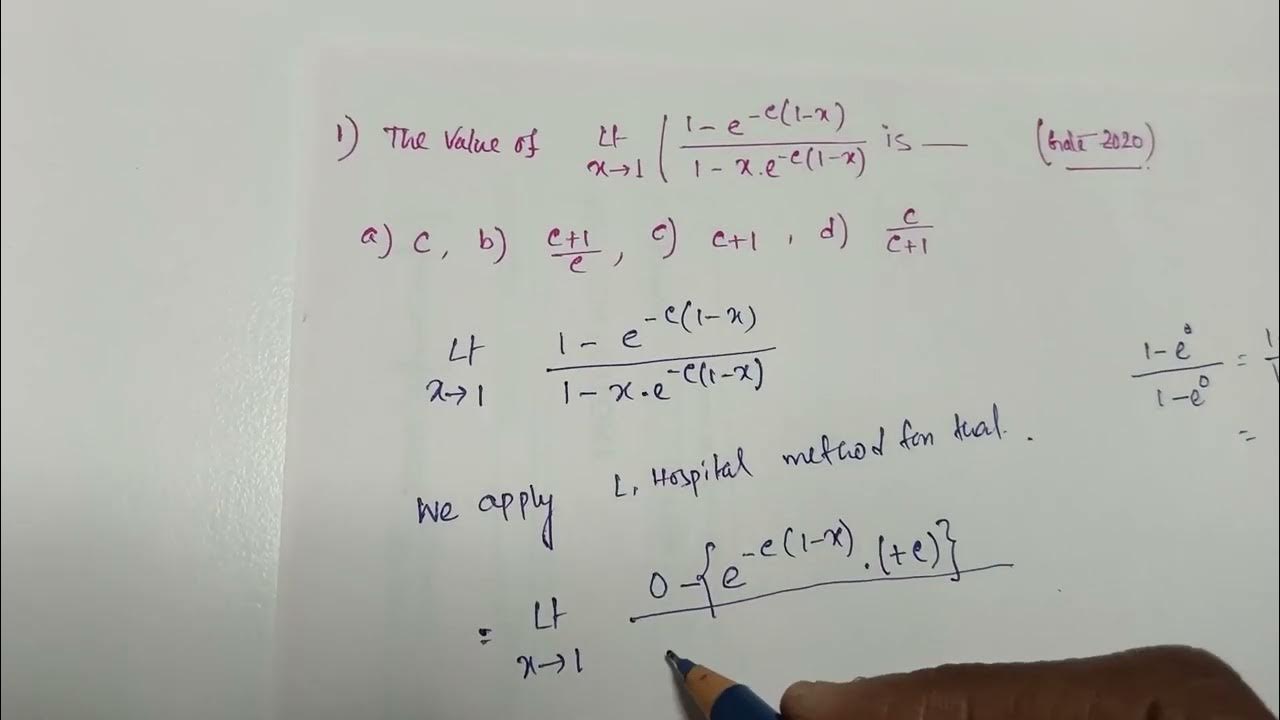 1) The value of Lt x→1 ( 1 - e^-c(1-x) / 1 - x.e^-c(1-x) is __ (Gate-2020)
a) c, b) c+1/c, c) c+1, d) c/c+1
Lt x→1 1 - e^-c(1-x) / 1 - x.e^-c(1-x)
1-e^0 / 1-e^0 = 1
=
We apply L, Hospital method for
= Lt x→1 0 - {e^-c(1-x) . (+c)}